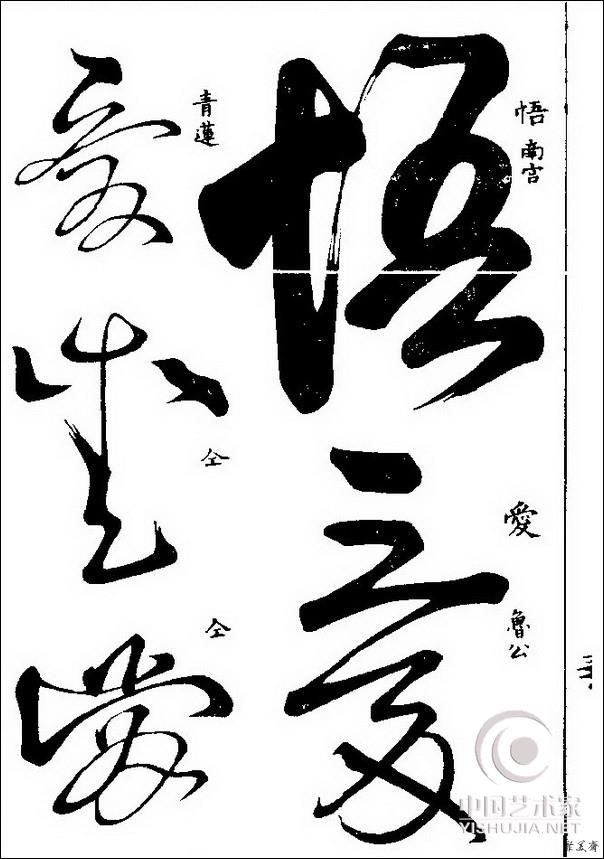 悟 南宮
悟
愛 魯公
愛
青蓮
愛
仝
愛
仝
愛
中国艺术家
YISHUJIA.NET